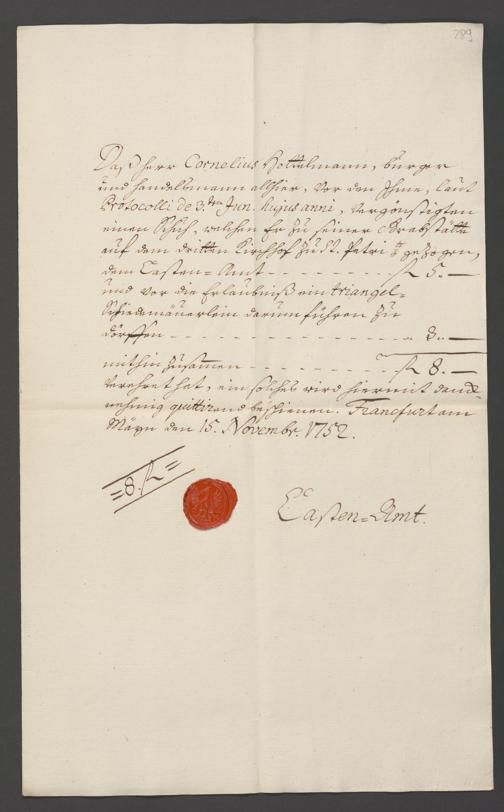 289
Daß Herr Cornelius Hottelmann, burger
und handelsmann allhier, vor den Ihme, laut
Protocolli de 3.ten Jun. hujus anni, vergönstigten
einen Schuh, welchen Er zu seiner Grabstätte
auf dem dritten Kirchhof zu St. Petri gezogen,
dem Casten=Amt - - - - - - - - fl 5. —
und vor die Erlaubniß ein triangel=
Schiedmäuerlein darum führen zu
dörffen - - - - - - - - - - - 3. —
mithin zusammen - - - - - - - fl 8. —
verehret hat, ein solches wird hiermit
quittirend beschienen. Francfurt am
Mayn den 15. Novembr. 1752.
=8. fl=
Casten=Amt.